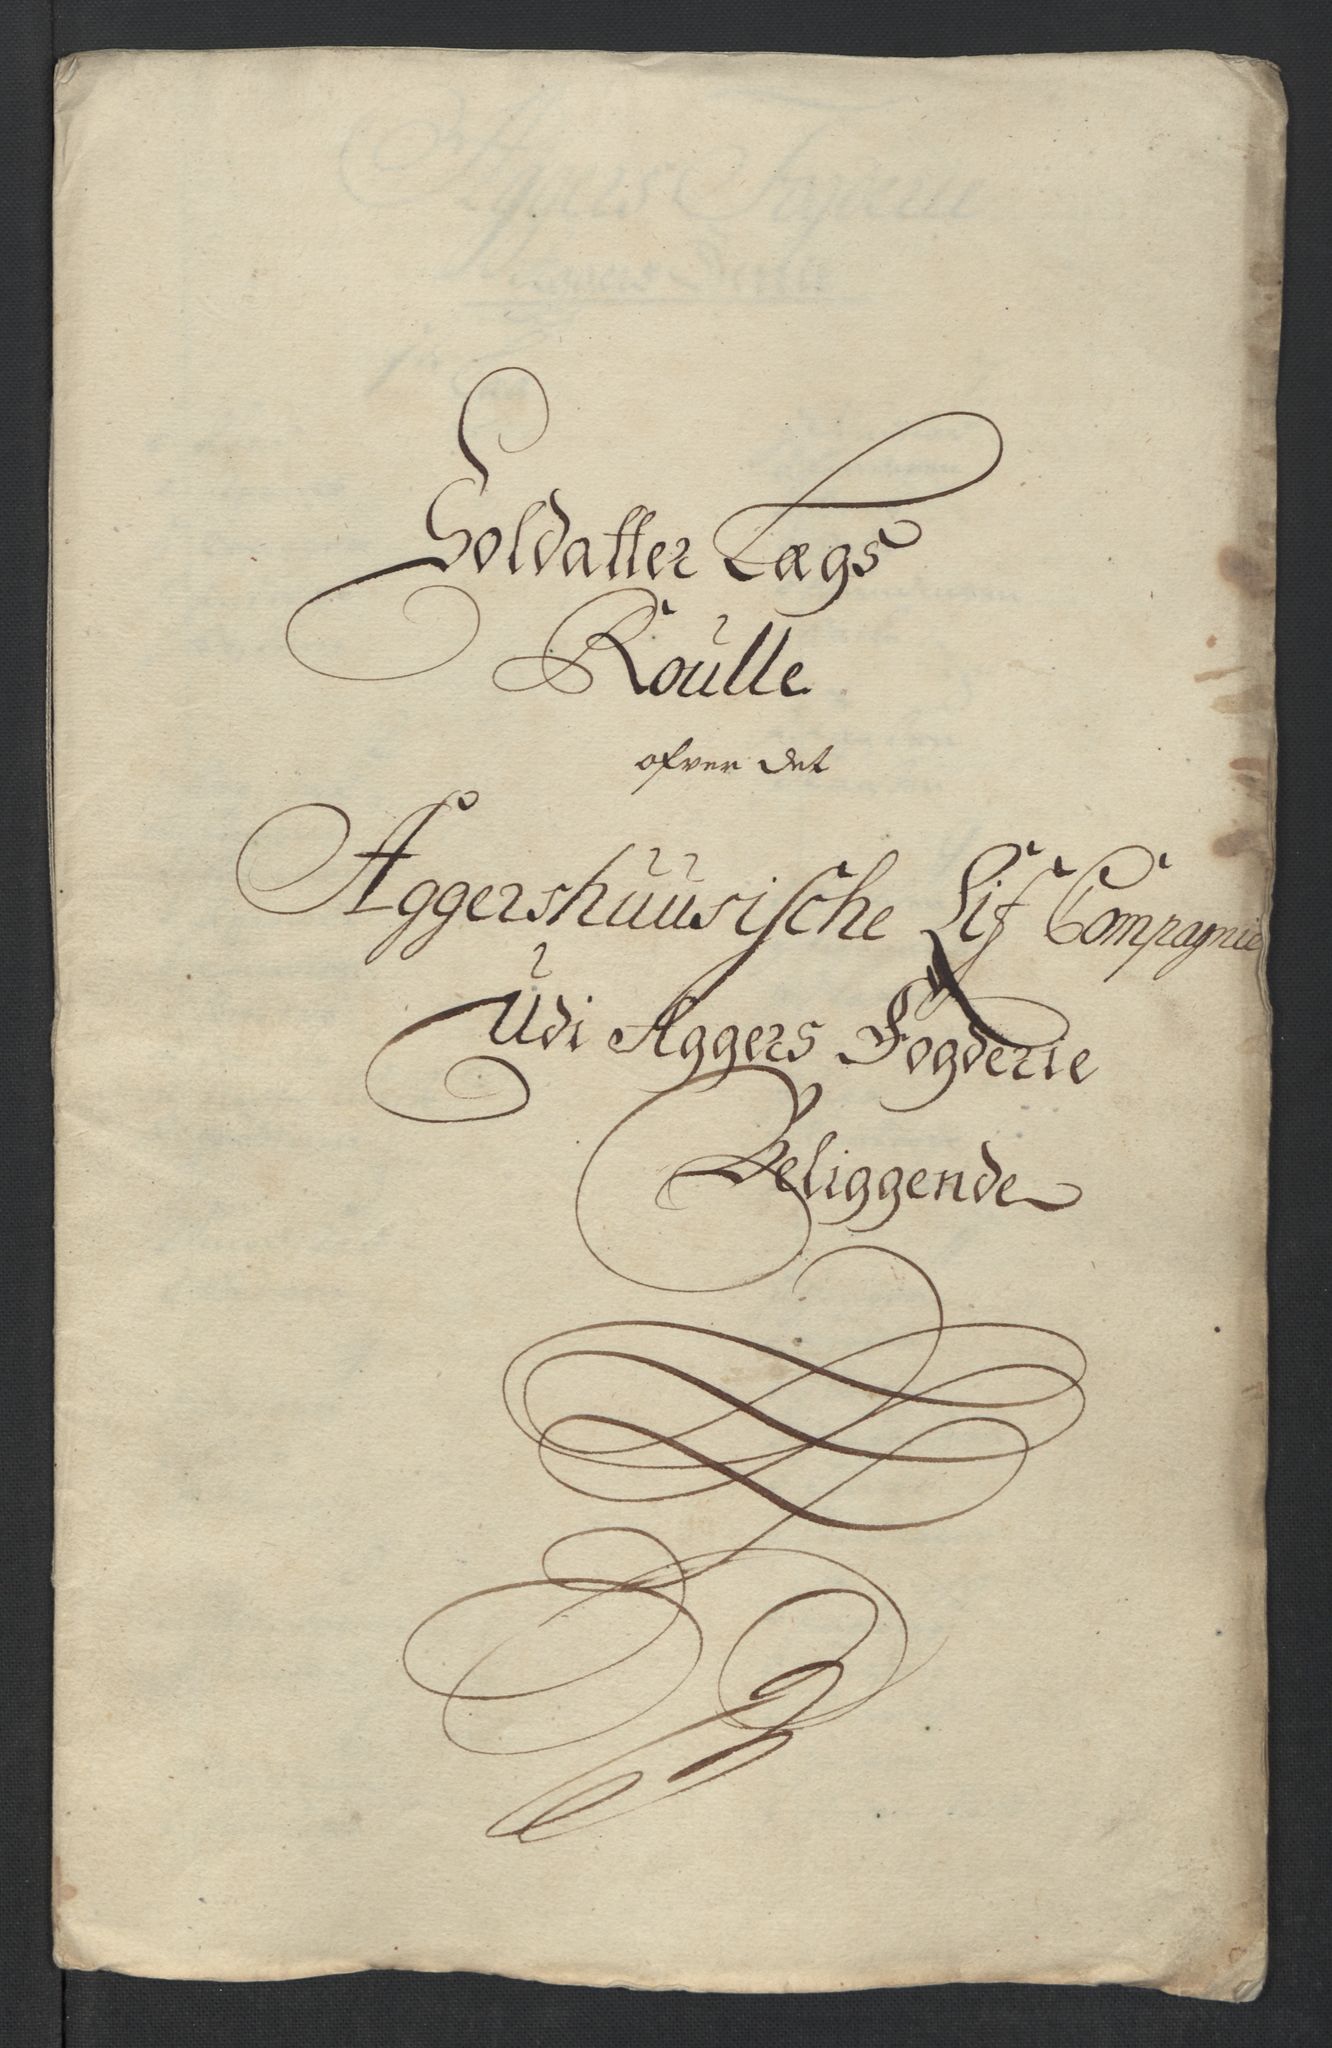 Soldatter Lægs
Roulle
ofver det
Aggershuusische Lif Compagnie
Udi Aggers Fogderie
Beliggende